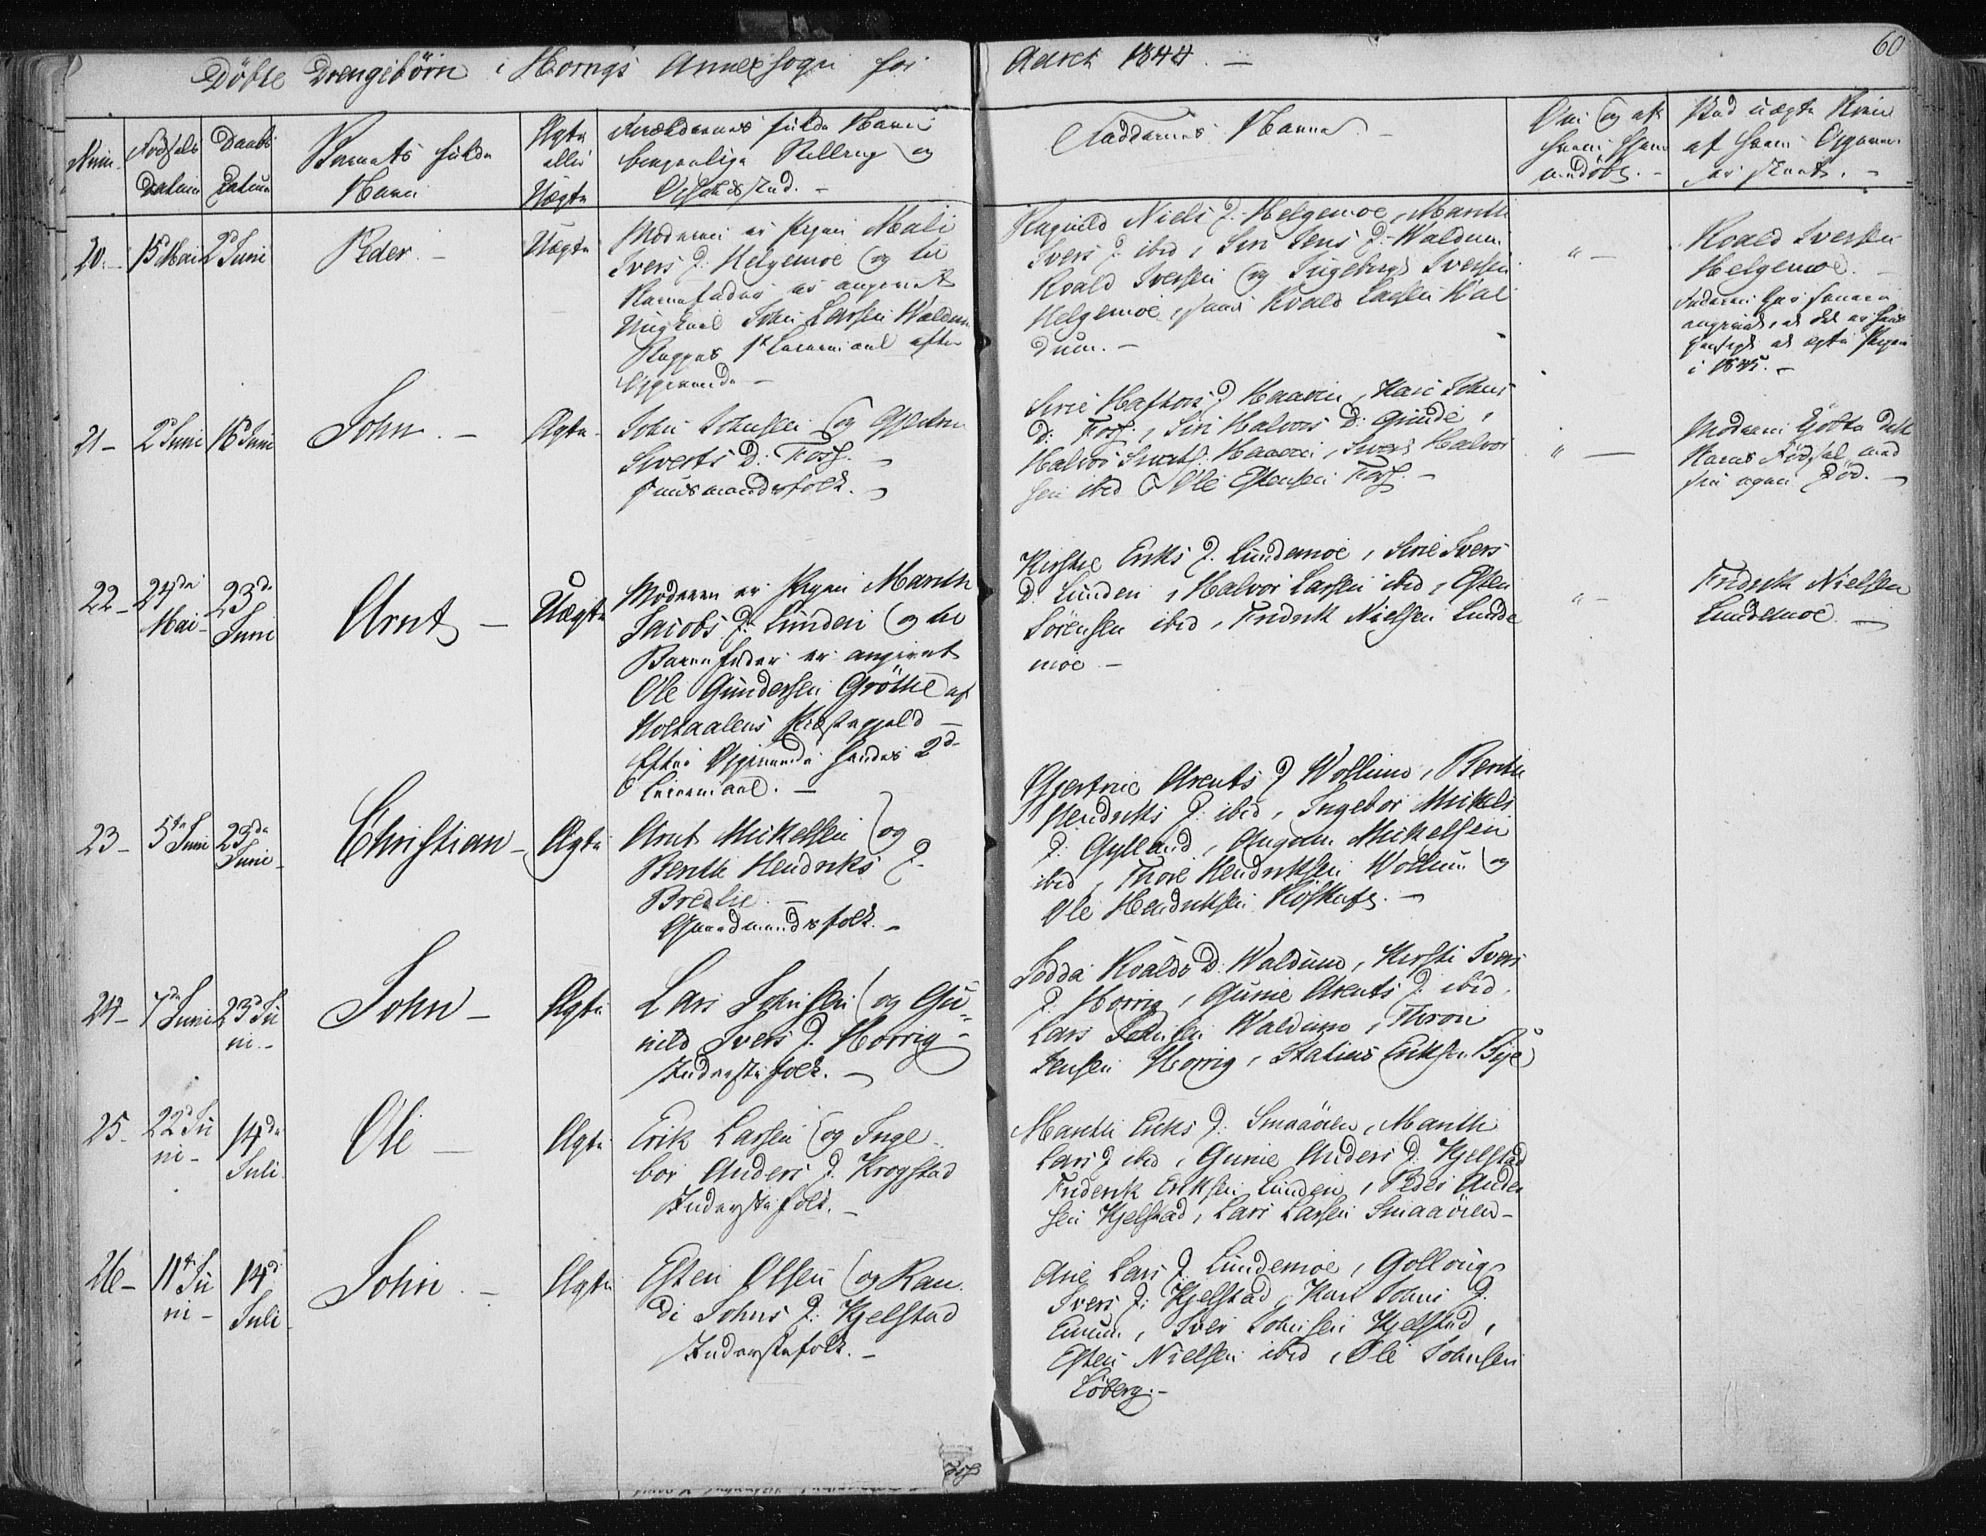 Döbte Drengebörn i Horrigs Annexsogn for Aaret 1844. —
60
Num. Fødsels Datum Daabs Datum Barnets fulde Navn Ægte eller Uægte Forældrenes fulde Navne borgerlige Stilling og Opholdssted. —
Faddernes Navne. —
Om og af hvem hjemmedöbt. —
Ved uægte Børn af hvem Opgaven er skeet. —
20. — 15d Mai 2d Juni Peder. — Uægte
Moderen er Pigen Mali
Ivers D: Helgemoe og til
Barnefader er angivet
Ungkarl John Larsen Waldum
Begges 1ste Leiermaal efter
Opgivende —
Ragnild Niels D: Helgemoe, Marith
Ivers D ibid, Siri Jens D: Waldum
Roald Iversen og Ingebrigt Iversen
Helgemoe, samt Roald Larsen Wal
dum. —
" —
Roald Iversen
Helgemoe. —
Faderen har senere
angivet, at det er hans
Hensigt at ægte Pigen
i 1845. —
21 — 2d Juni 16 Juni John. — Ægte.
John Johnsen og Gjertru
Siverts D: Foss. —
Huusmandsfolk. —
Sirie Haftors D Haaven, Kari Johns
D: Foss, Siri Halvors D: Grinde,
Halvor Sivertsen Haaven, Sivert Halvor
sen ibid Ole Estensen Foss. —
" —
Moderen Döbte ved
Barnets Födsel med
sin egen Död. —
22 — 24de Mai — 23de Juni Arnt — Uægte
Moderen er Pigen Marith
Jacobs D: Lunden og til
Barnefader er angivet
Ole Gundersen Gröthe af
Holtaalens Præstegjeld —
Efter Opgivende hendes 2d
Leiermaal. —
Kirstie Eriks D. Lundemoe, Sirie Ivers
D. Lunden, Halvor Larsen ibid, Esten
Sörensen ibid, Fridrik Nielsen Lunde
moe —
" —
Fridrik Nielsen
Lundemoe. —
23 — 5te Juni 23de Juni — Christian — Ægte
Arnt Mikkelsen og
Berith Hendriks D.
Bredlie. —
Gaardmandsfolk. —
Gjertrue Arents D Wollum, Berith
Hendriks D. ibid, Ingebor Mikkels
D: Gylland, Angolm Mikkelsen
ibid, Thore Hendriksen Wollum og
Ole Hendriksen Röskaft. —
24 — 7de Juni 23d Ju
ni. — John — Ægte
Lars Johnsen og Gu
nild Ivers D. Horrig —
Inderstefolk. —
Jodda Roalds D. Waldum, Kirsti Ivers
D: Horrig, Gurue Arents D. ibid.
Lars Johnsen Waldum, Thron
Jensen Horrig, Stalius Eriksen Bye
25 — 22d Ju
ni — 14de Juli Ole — Ægte
Erik Larsen og Inge
bor Anders D. Krogstad
Inderstefolk. —
Marith Eriks D: Smaaöien, Marith
Lars D ibid, Gurue Anders D. Kjelstad
Friderik Eriksen Lunden, Peder Ander
sen Kjelstad, Lars Larsen Smaaöien —
26 — 11te Ju
ni — 14d Juli John. — Ægte
Esten Olsen og Ran
di Johns D: Kjelstad
Inderstefolk. —
Ane Lars D. Lundemoe, Gollaug
Ivers D: Kjelstad, Kari Johns D.
Enum, Iver Johnsen Kjelstad,
Esten Nielsen ibid, Ole Johnsen
Löberg. —